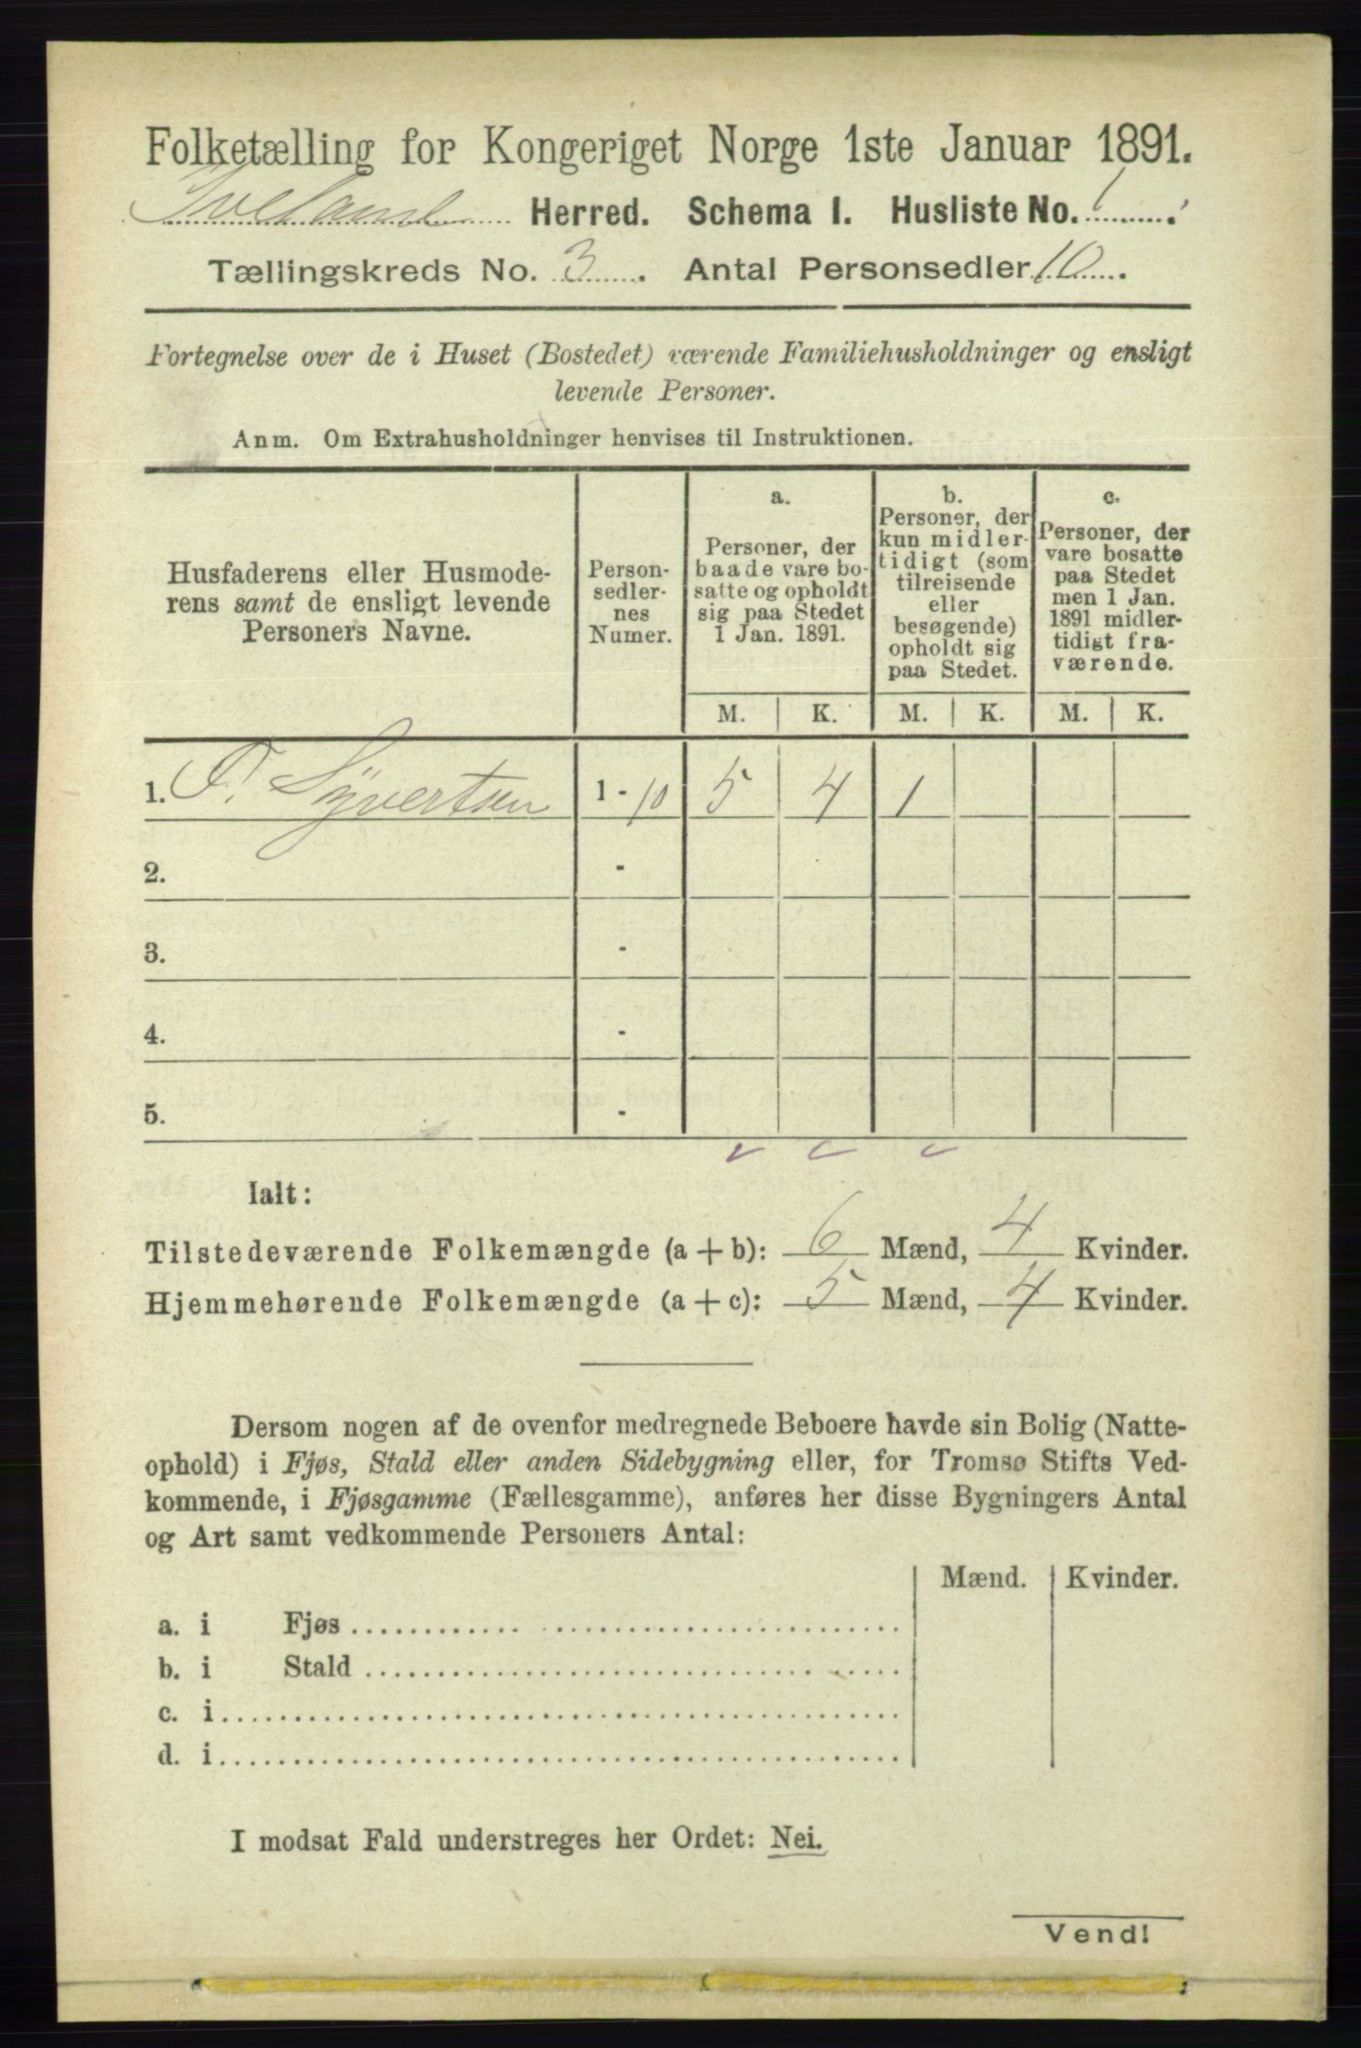 Folketælling for Kongeriget Norge 1ste Januar 1891.
Iveland Herred. Schema I. Husliste No. 1.
Tællingskreds No. 3. Antal Personsedler 10.
Fortegnelse over de i Huset (Bostedet) værende Familiehusholdninger og ensligt
levende Personer.
Anm. Om Extrahusholdninger henvises til Instruktionen.
Husfaderens eller Husmode-
rens samt de ensligt levende
Personers Navne.
Person-
sedler-
nes
Numer.
a.
Personer, der
baade vare bo-
satte og opholdt
sig paa Stedet
1 Jan. 1891.
b.
Personer, der
kun midler-
tidigt (som
tilreisende
eller
besøgende)
opholdt sig
paa Stedet.
c.
Personer, der
vare bosatte
paa Stedet
men 1 Jan.
1891 midler-
tidigt fra-
værende.
M. K. M. K. M. K.
1. O. Syvertsen 1 - 10 5 4 1
2. -
3. -
4. -
5. -
Ialt:
Tilstedeværende Folkemængde (a + b): 6 Mænd, 4 Kvinder.
Hjemmehørende Folkemængde (a + c): 5 Mænd, 4 Kvinder.
Dersom nogen af de ovenfor medregnede Beboere havde sin Bolig (Natte-
ophold) i Fjøs, Stald eller anden Sidebygning eller, for Tromsø Stifts Ved-
kommende, i Fjøsgamme (Fællesgamme), anføres her disse Bygningers Antal
og Art samt vedkommende Personers Antal:
Mænd. Kvinder.
a. i Fjøs
b. i Stald
c. i
d. i
I modsat Fald understreges her Ordet: Nei.
Vend!